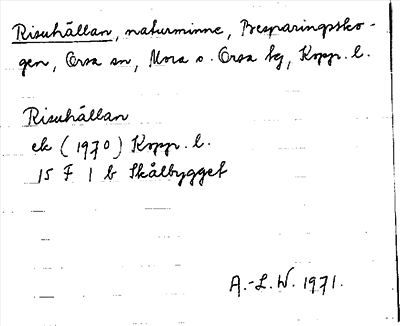 Risuhällan, naturminne, Besparingssko-
gen, Orsa sn, Mora o. Orsa tg, Kopp. l.
Risuhällan
ek (1970) Kopp. l.
15 F 1 b Skålbygget
A.-L. W. 1971.